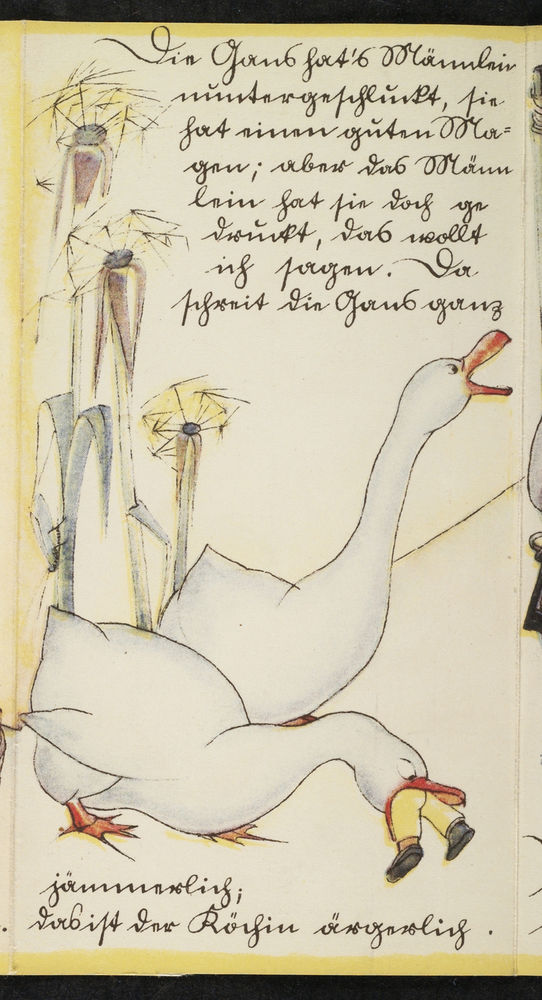 Die Gans hat's Männlein
nuntergeschluckt, sie
hat einen guten Ma=
gen; aber das Männ
lein hat sie doch ge
druckt, das wollt
ich sagen. Da
schreit die Gans ganz
jämmerlich;
das ist der Köchin ärgerlich.